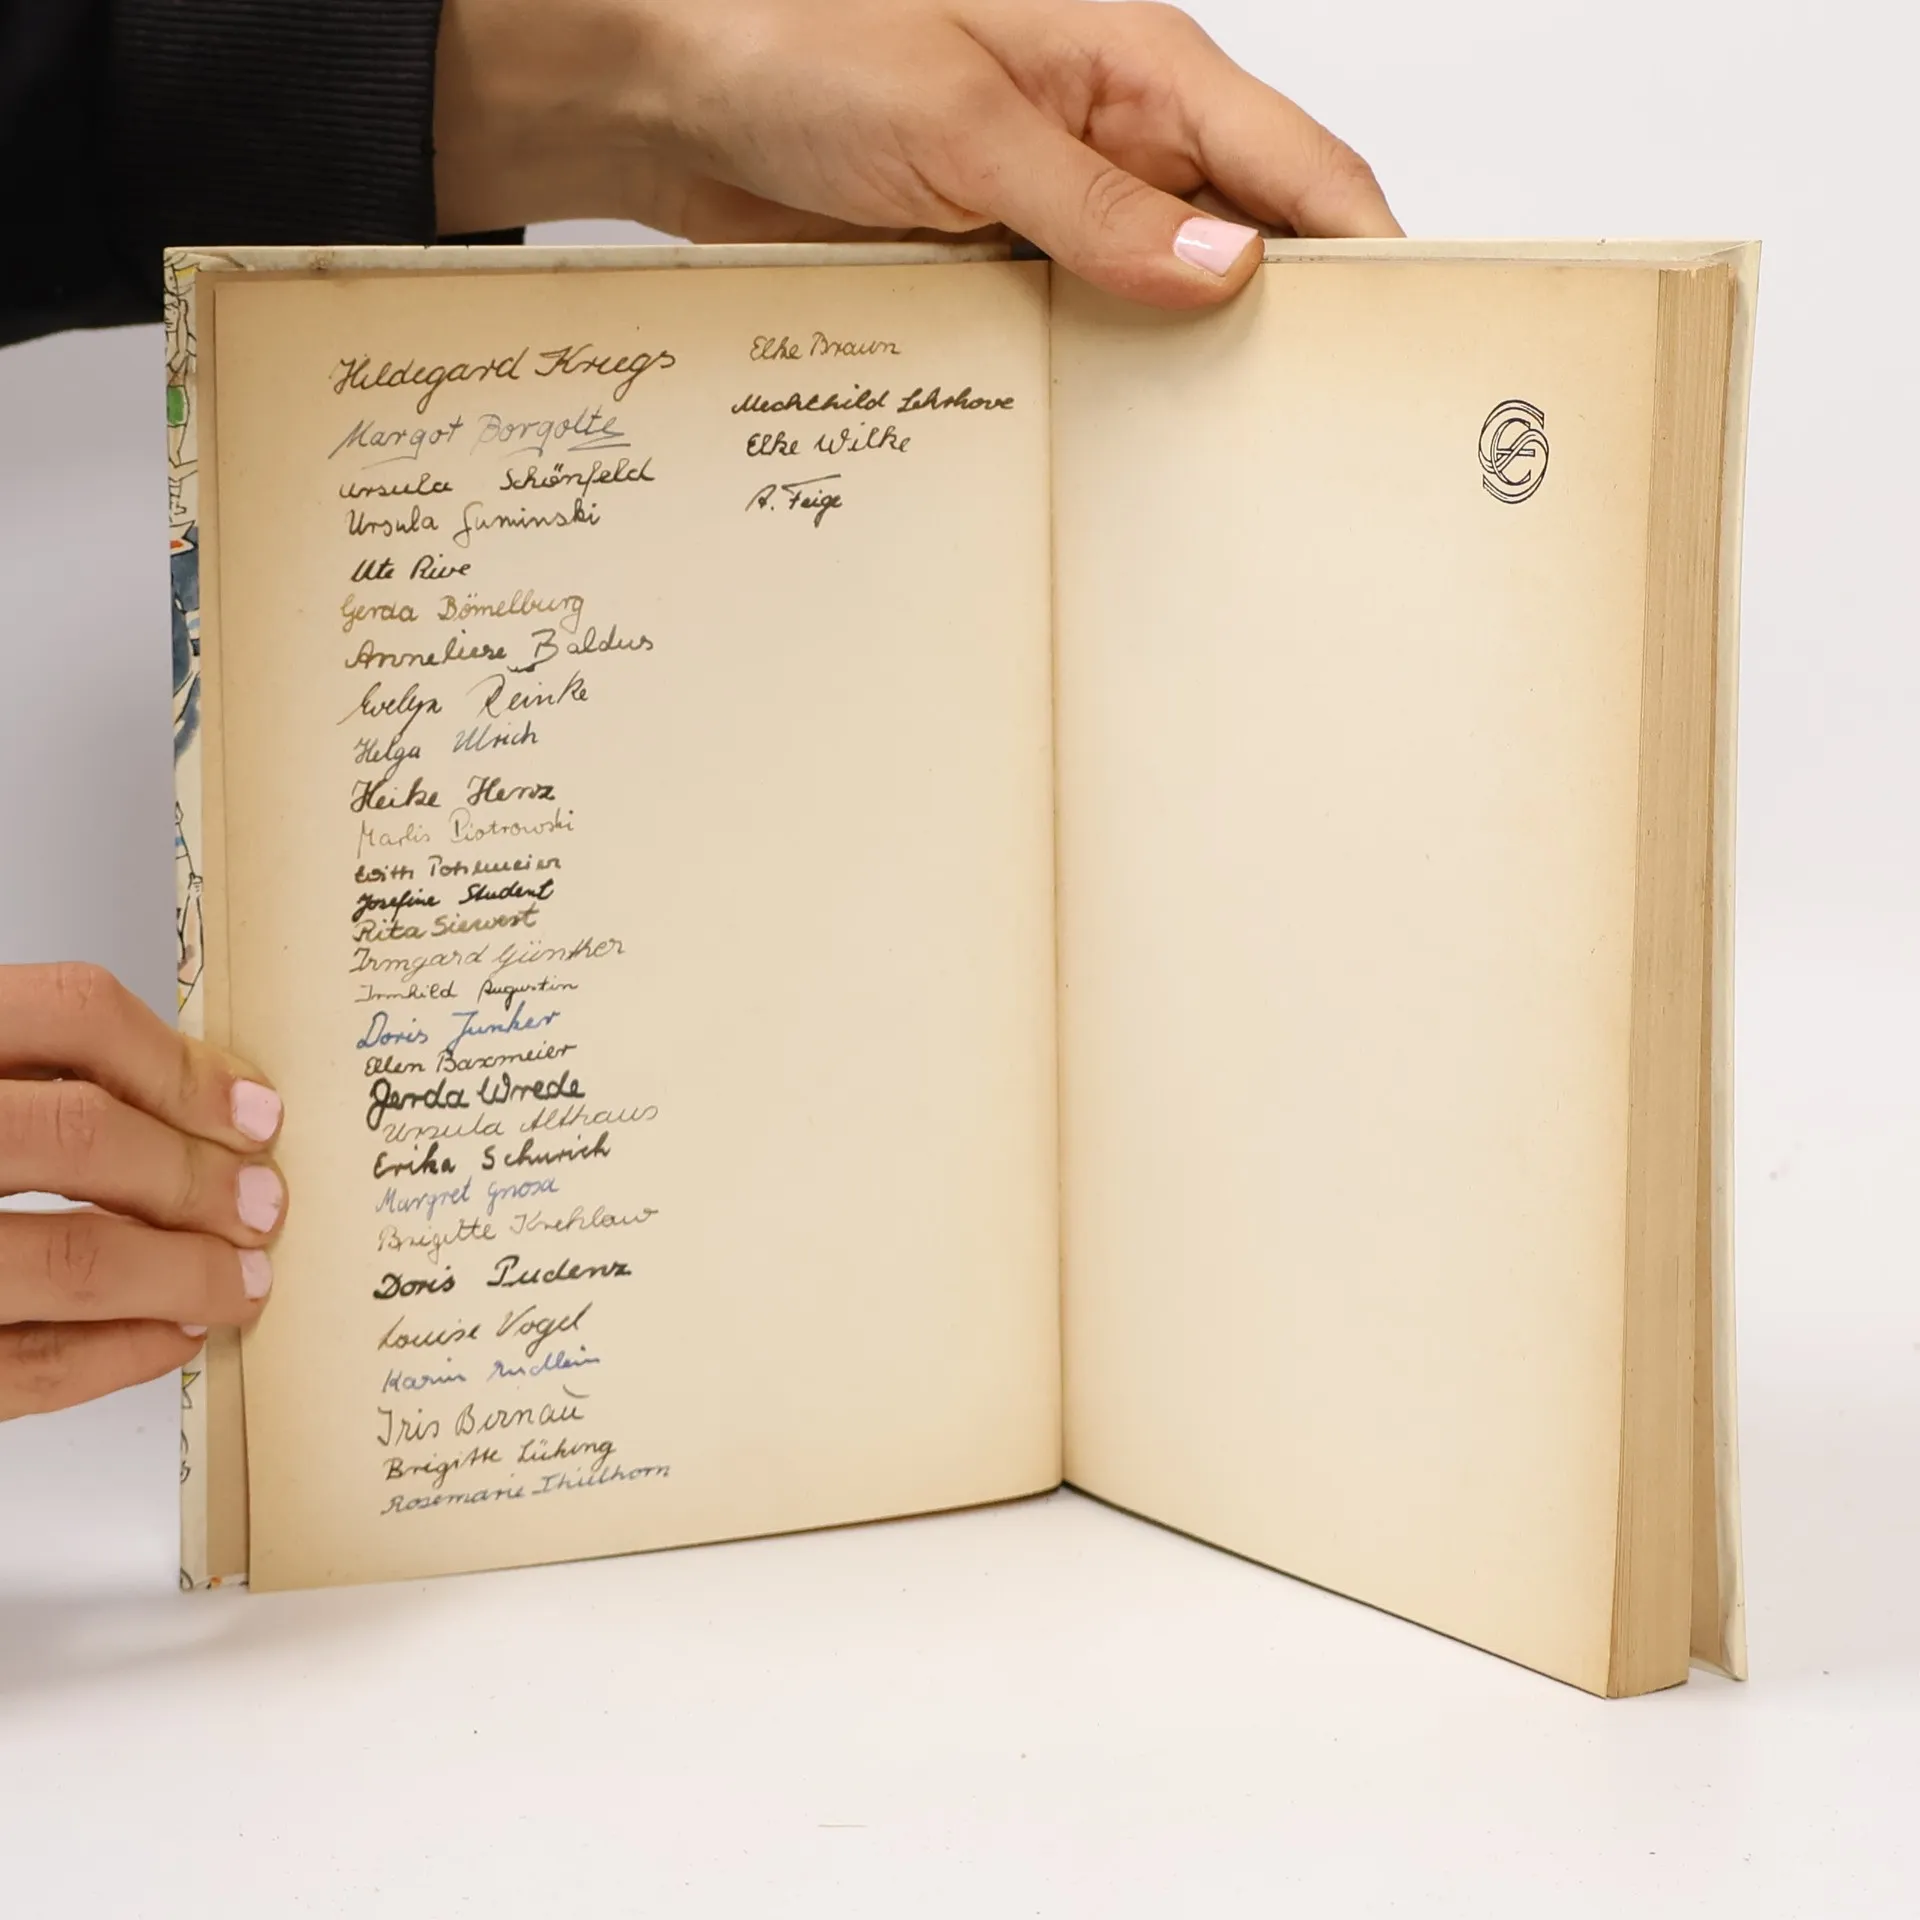 Hildegard Kriegs
Margot Borgolte
Ursula Schönfeld
Ursula Suminski
Ute Rive
Gerda Bömelburg
Anneliese Baldus
Evelyn Reinke
Helga Ulrich
Heike Henz
Marlis Piotrowski
Edith Pohlmeier
Josefine Student
Rita Siewert
Irmgard Günther
Irmhild Augustin
Doris Junker
Ellen Baxmeier
Gerda Wrede
Ursula Althaus
Erika Schurich
Margret Gnosa
Brigitte Krehlaw
Doris Pudenz
Louise Vogel
Karin
Iris Bernau
Brigitte Lüking
Rosemarie Thielhorn
Elke Braun
Mechthild
Elke Wilke
A. Feige